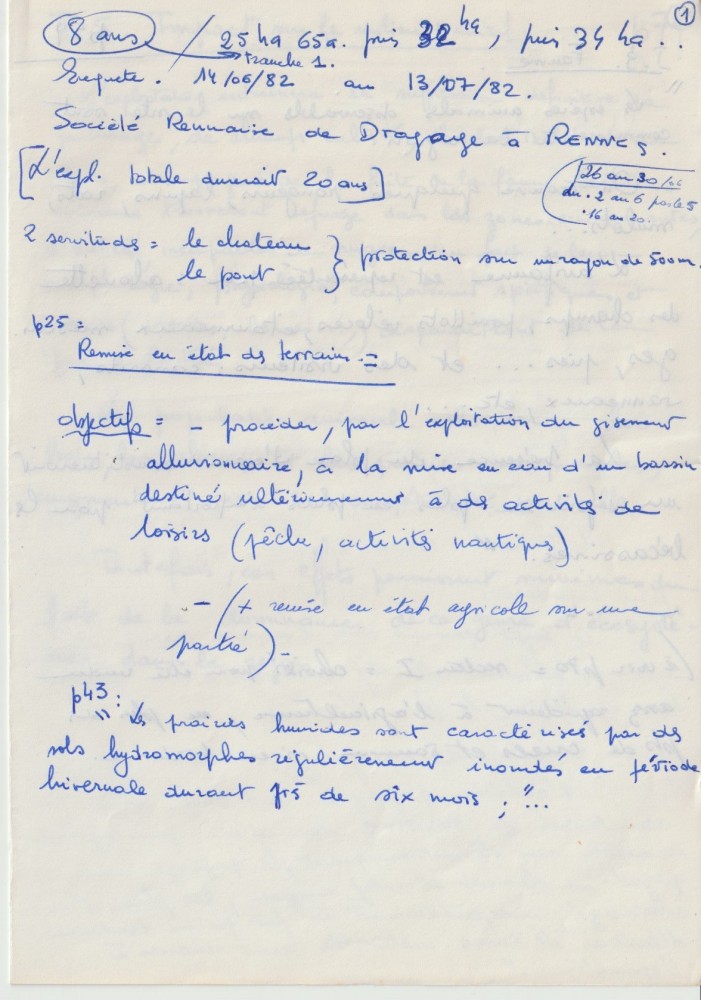 ①
8 ans / 25 ha 65a. puis 32 ha, puis 34 ha..
tranche 1.
Enquete. 14/06/82 au 13/07/82.
Société Rennaise de Dragage à RENNES.
[L'expl. totale durerait 20 ans]
26 au 30/06
du. 2 au 6
. 16 au 20.
2 servitudes = le chateau
le pont } protection sur un rayon de 500m.
p25 =
Remise en état des terrains. =
objectifs = - procéder, par l'exploitation du gisement
alluvionnaire, à la mise en eau d'un bassin
destiné ultérieurement à des activités de
loisirs (pêche, activités nautiques)
- (+ remise en état agricole sur une
partie) -
p43 :
" Les prairies humides sont caractérisées par des
sols hydromorphes régulièrement inondés en période
hivernale durant près de six mois ; "...